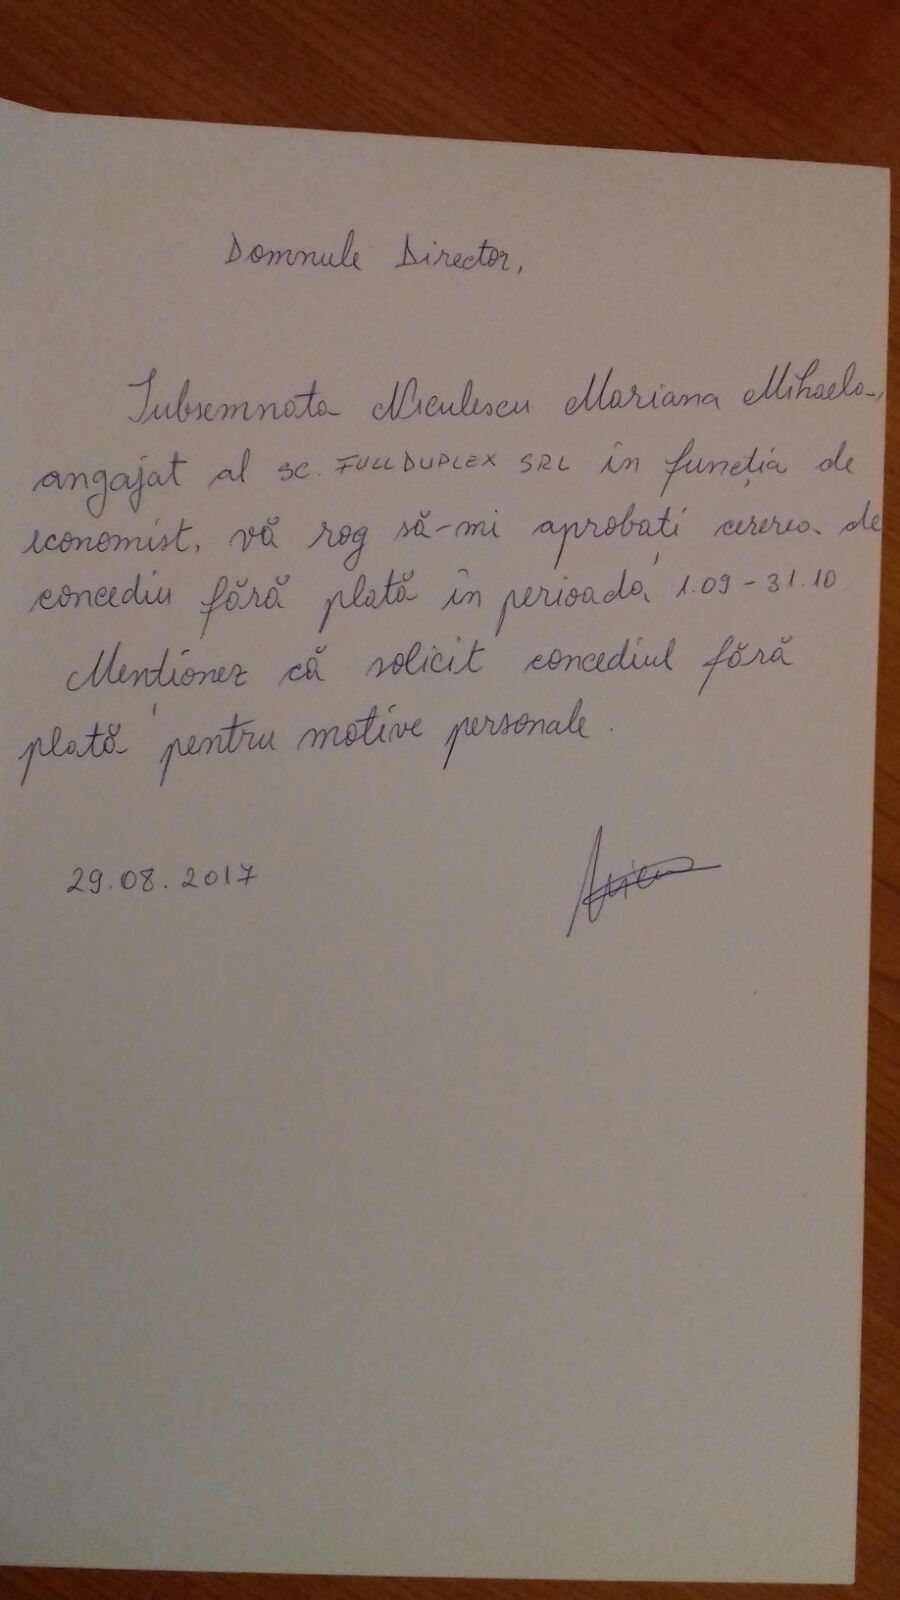 Domnule Director,
Subsemnata Niculescu Mariana Mihaela,
angajat al SC. FULL DUPLEX SRL în funcția de
economist, vă rog să-mi aprobați cererea de
concediu fără plată în perioada 1.09 - 31.10
Menționez că solicit concediul fără
plată pentru motive personale.
29.08.2017